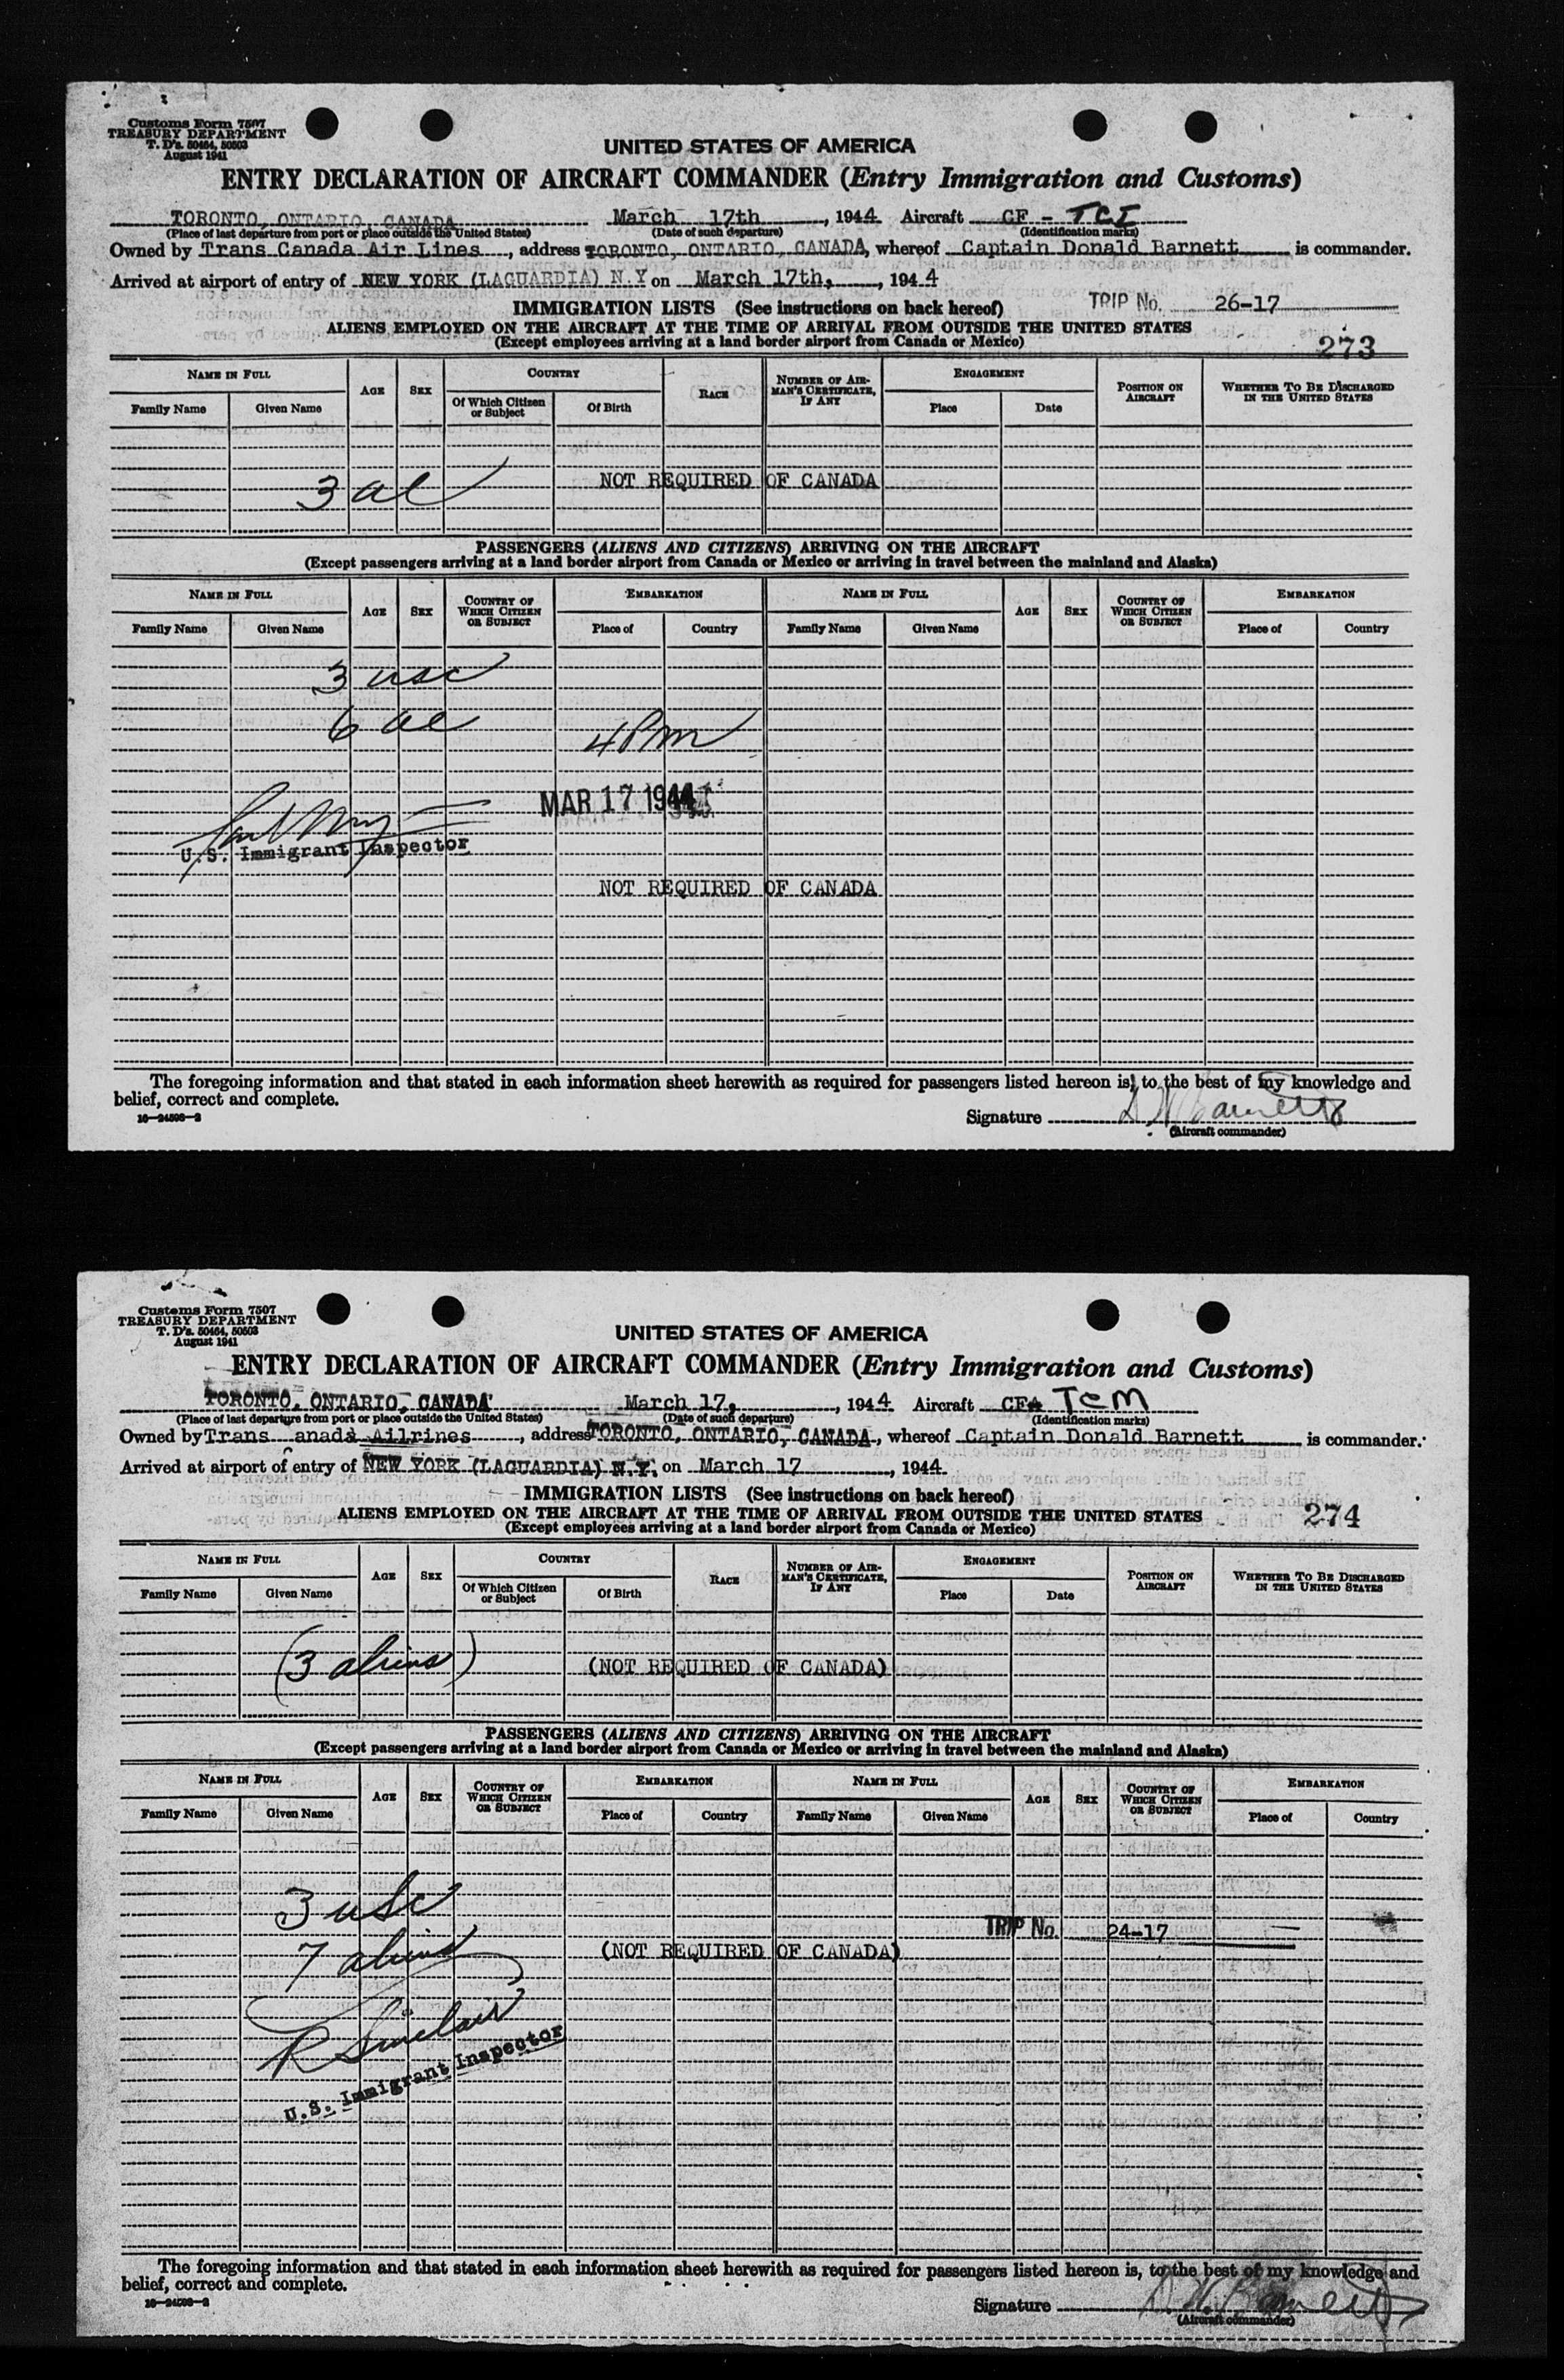 Customs Form 7507
TREASURY DEPARTMENT
T. D's. 50464, 50503
August 1941
UNITED STATES OF AMERICA
ENTRY DECLARATION OF AIRCRAFT COMMANDER (Entry Immigration and Customs)
TORONTO, ONTARIO, CANADA March 17th, 1944 Aircraft CF - TCI
(Place of last departure from port or place outside the United States) (Date of such departure) (Identification marks)
Owned by Trans Canada Air Lines, address TORONTO, ONTARIO, CANADA, whereof Captain Donald Barnett is commander.
Arrived at airport of entry of NEW YORK (LAGUARDIA) N.Y on March 17th, 1944
IMMIGRATION LISTS (See instructions on back hereof) TRIP No. 26-17
ALIENS EMPLOYED ON THE AIRCRAFT AT THE TIME OF ARRIVAL FROM OUTSIDE THE UNITED STATES
(Except employees arriving at a land border airport from Canada or Mexico) 273
NAME IN FULL AGE SEX COUNTRY RACE NUMBER OF AIRMAN'S CERTIFICATE, IF ANY ENGAGEMENT POSITION ON AIRCRAFT WHETHER TO BE DISCHARGED IN THE UNITED STATES
Family Name Given Name Of Which Citizen or Subject Of Birth Place Date
3 al NOT REQUIRED OF CANADA
PASSENGERS (ALIENS AND CITIZENS) ARRIVING ON THE AIRCRAFT
(Except passengers arriving at a land border airport from Canada or Mexico or arriving in travel between the mainland and Alaska)
NAME IN FULL AGE SEX COUNTRY OF WHICH CITIZEN OR SUBJECT EMBARKATION NAME IN FULL AGE SEX COUNTRY OF WHICH CITIZEN OR SUBJECT EMBARKATION
Family Name Given Name Place of Country Family Name Given Name Place of Country
3 usc
6 al 4 Pm
MAR 17 1944
U.S. Immigrant Inspector
NOT REQUIRED OF CANADA
The foregoing information and that stated in each information sheet herewith as required for passengers listed hereon is, to the best of my knowledge and
belief, correct and complete.
16—24598-2 Signature D W Barnett
(Aircraft commander)
Customs Form 7507
TREASURY DEPARTMENT
T. D's. 50464, 50503
August 1941
UNITED STATES OF AMERICA
ENTRY DECLARATION OF AIRCRAFT COMMANDER (Entry Immigration and Customs)
TORONTO, ONTARIO, CANADA March 17, 1944 Aircraft CF TCM
(Place of last departure from port or place outside the United States) (Date of such departure) (Identification marks)
Owned by Trans anada Ailrines, address TORONTO, ONTARIO, CANADA, whereof Captain Donald Barnett is commander.
Arrived at airport of entry of NEW YORK (LAGUARDIA) N.Y. on March 17, 1944
IMMIGRATION LISTS (See instructions on back hereof)
ALIENS EMPLOYED ON THE AIRCRAFT AT THE TIME OF ARRIVAL FROM OUTSIDE THE UNITED STATES 274
(Except employees arriving at a land border airport from Canada or Mexico)
NAME IN FULL AGE SEX COUNTRY RACE NUMBER OF AIRMAN'S CERTIFICATE, IF ANY ENGAGEMENT POSITION ON AIRCRAFT WHETHER TO BE DISCHARGED IN THE UNITED STATES
Family Name Given Name Of Which Citizen or Subject Of Birth Place Date
(3 aliens) (NOT REQUIRED OF CANADA)
PASSENGERS (ALIENS AND CITIZENS) ARRIVING ON THE AIRCRAFT
(Except passengers arriving at a land border airport from Canada or Mexico or arriving in travel between the mainland and Alaska)
NAME IN FULL AGE SEX COUNTRY OF WHICH CITIZEN OR SUBJECT EMBARKATION NAME IN FULL AGE SEX COUNTRY OF WHICH CITIZEN OR SUBJECT EMBARKATION
Family Name Given Name Place of Country Family Name Given Name Place of Country
3 usc
TRIP No. 24-17
7 aliens (NOT REQUIRED OF CANADA)
R Sinclair
U.S. Immigrant Inspector
The foregoing information and that stated in each information sheet herewith as required for passengers listed hereon is, to the best of my knowledge and
belief, correct and complete.
16—24598-2 Signature D. W. Barnett
(Aircraft commander)